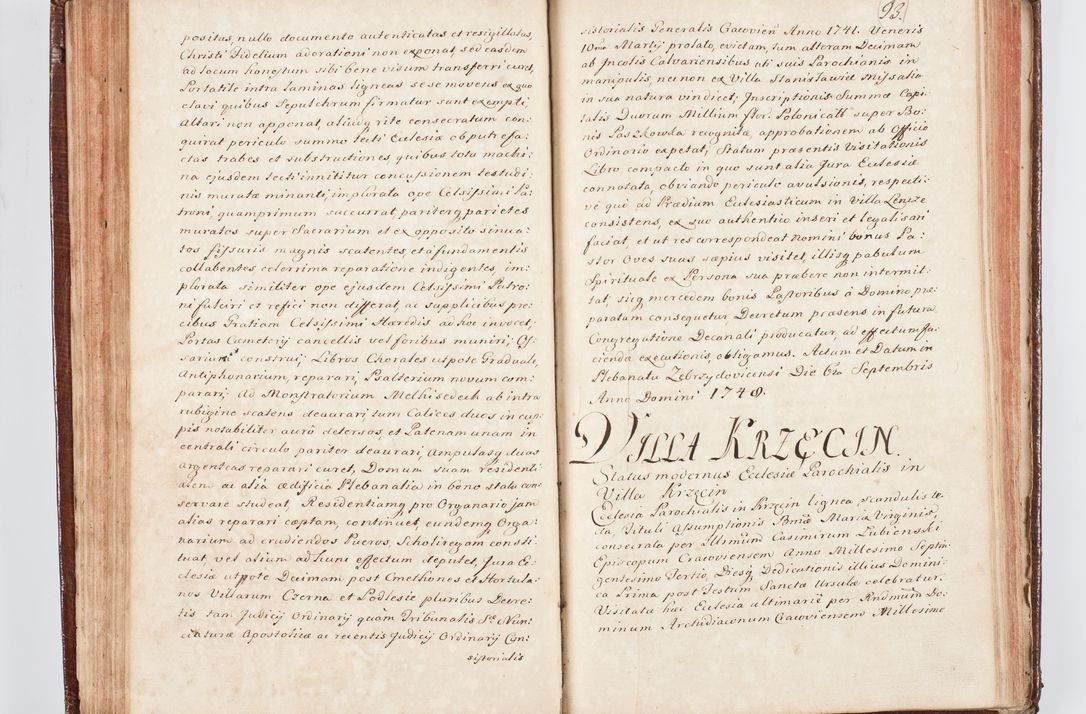 positas, nullo documento autenticatas et resigillatas,
Christi Fidelium adorationi non exponat, sed easdem
ad locum honestum sibi bene visum transferri curet,
Portatile intra laminas ligneas se se movens ex quo
clavi quibus Sepulchrum firmatur sunt exempti,
Altari non apponat, aliudq rite consecratum con:
quirat periculo summo tecti Ecclesiæ ob putrefa:
ctas trabes et substructiones, quibus tota machi:
na ejusdem tecti innititur concussionem testudi:
nis muratæ minanti, implorata ope Celsissimi Pa:
troni, quamprimum succurrat, pariterq parietes
muratos super Sacrarium et ex opposito sinua:
tos fissuris magnis scatentes, et a fundamentis
collabentes celerrima reparatione indigentes, im:
plorata similiter ope ejusdem Celsissimi Patro:
ni fulciri et refici non differat, ac supplicibus pre:
cibus Gratiam Celsissimi Hæredis ad hoc invocet,
Portas Cæmeterij cancellis vel foribus muniri, Os:
sarium construi, Libros Chorales utpote Graduale,
Antiphonarium, reparari, Psalterium novum com:
parari, ad Monstratorium Melchisedech ab intra
rubigine scatens deaurari, tum Calices duos in cup:
pis notabiliter auro detersos, et Patenam unam in
centrali circulo pariter deaurari, ampulasq duas
argenteas reparari curet, Domum suam residenti:
alem ac alia ædificia Plebanalia in bono statu con:
servare studeat, Residentiamq pro Organario jam
alias reparari cæptam, continuet, eundemq Orga:
narium ad erudiendos Pueros, Scholiregam consti:
tuat, vel alium ad hunc effectum deputet, Jura Ec:
clesiæ utpote Decimam post Cmethones et Hortula:
nos Villarum Czerna et Podlesie pluribus Decre:
tis tam Judicij Ordinarij quàm Tribunalis Sæ Nun:
ciaturæ Apostolicæ ac recentis Judicij Ordinarij Con:
sistorialis
93.
sistorialis Generalis Cracovien Anno 1741. Veneris
10ma Martij prolato, evictam, tum alteram Decimam
ab Incolis Calvariensibus uti suis Parochianis in
manipulis, nec non ex Villa Stanisławice Missalia
in sua natura vindicet, Inscriptionis Summæ Capi:
talis Duorum Millium flor. Polonicall super Bo:
nis Paszkowka recognitæ, approbationem ab Officio
Ordinario expetat, Statum præsentis Visitationis
Libro compacto in quo sunt alia Jura Ecclesiæ
connotata, obviando periculo avulsionis, respecti:
vè quò ad Prædium Ecclesiasticum in Villa Lencze
consistens, ex suo authentico inseri et legalisari
faciat, et ut res correspondeat nomini bonus Pa:
stor Oves suas sæpius visitet, illisq pabulum
Spirituale ex Persona sua præbere non intermit:
tat, sicq mercedem bonis Pastoribus à Domino præ:
paratam consequetur, Decretum præsens in futura
Congregatione Decanali producatur, ad effectum fa:
ciendæ executionis, obligamus. Actum et Datum in
Plebanatu Zebrzydovicensi Die 6ta Septembris
Anno Domini 1748.
VILLA KRZĘCIN.
Status modernus Ecclesiæ Parochialis in
Villa Krzęcin
Ecclesia Parochialis in Krzęcin lignea, scandulis te:
cta, Tituli Assumptionis Bmæ Mariæ Virginis,
consecrata per Illrmum Casimirum Łubienski
Episcopum Cracoviensem Anno Millesimo Septin:
gentesimo Tertio, Diesq Dedicationis illius Domini:
ca Prima post Festum Sanctæ Ursulæ celebratur.
Visitata hæc Ecclesia ultimariè per Rndmum Do:
minum Archidiaconum Cracoviensem Millesimo